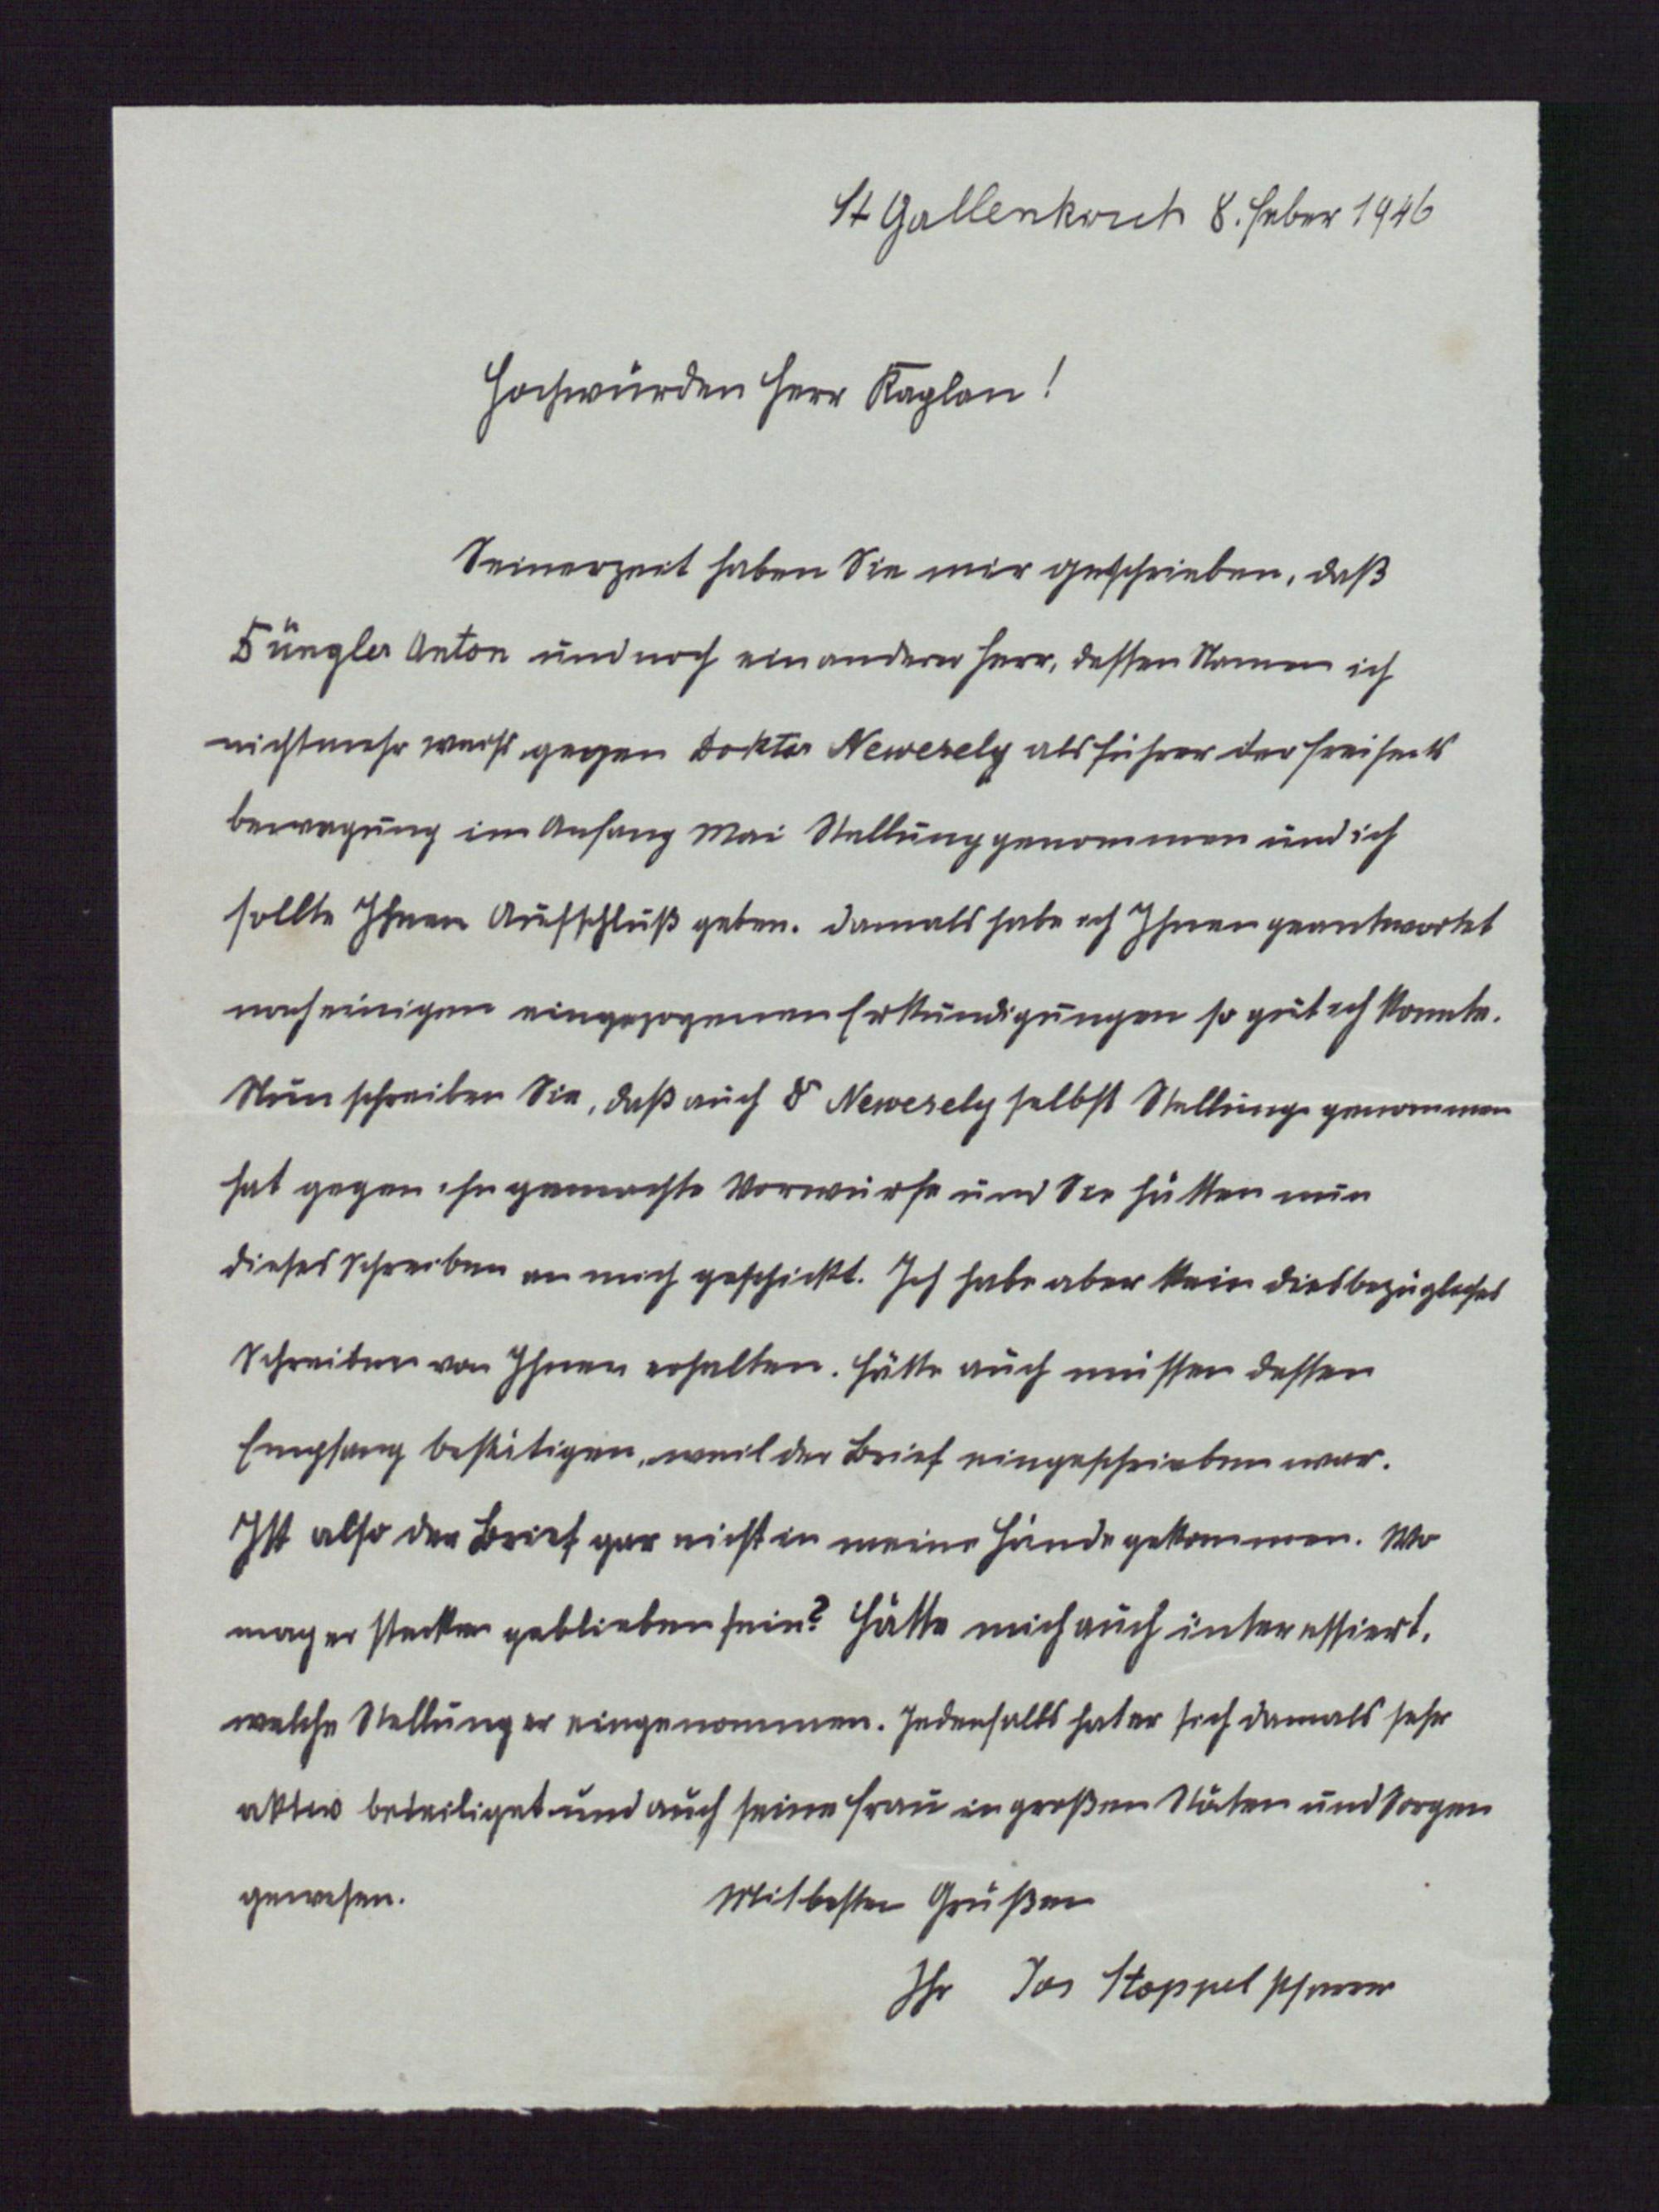 St Gallenkirch 8. Feber 1946
Hochwürden Herr Kaplan!
Seinerzeit haben Sie mir geschrieben, daß
Düngler Anton und noch ein anderer Herr, dessen Namen ich
nicht mehr weiß gegen Doktor Newesely als Führer der Freiheits
bewegung im Anfang Mai Stellung genommen und ich
sollte Ihnen Aufschluß geben. Damals habe ich Ihnen geantwortet
nach einigen eingezogenen Erkundigungen so gut ich konnte.
Nun schreiben Sie, daß auch Dr Newesely selbst Stellung genommen
hat gegen ihn gemachte Vorwürfe und Sie hätten nun
dieses Schreiben an mich geschickt. Ich habe aber kein diesbezügliches
Schreiben von Ihnen erhalten. Hätte auch müssen dessen
Empfang bestätigen, weil der Brief eingeschrieben war.
Ist also der Brief gar nicht in meine Hände gekommen. Wo
mag er stecken geblieben sein? Hätte mich auch interessiert,
welche Stellung er eingenommen. Jedenfalls hat er sich damals sehr
aktiv beteiliget und auch seine Frau in großen Nöten und Sorgen
gewesen. Mit besten Grüßen
Ihr Jos Stoppel Pfarrer